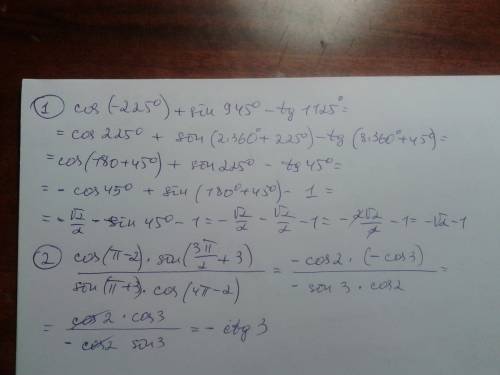 1 cos(-225°) + sin 945° - tg 1125° =
= cos 225° + sin (2·360° + 225°) - tg (8·360° + 45°) =
= cos(180+45°) + sin 225° - tg 45° =
= - cos 45° + sin (180° + 45°) - 1 =
= - √2/2 - sin 45° - 1 = - √2/2 - √2/2 - 1 = - 2√2/2 - 1 = -√2 - 1
2 cos(π-2) · sin(3π/2 + 3) / sin(π+3) · cos(4π-2) = -cos2 · (-cos3) / - sin 3 · cos2 =
= cos2 · cos3 / - cos2 sin3 = - ctg 3